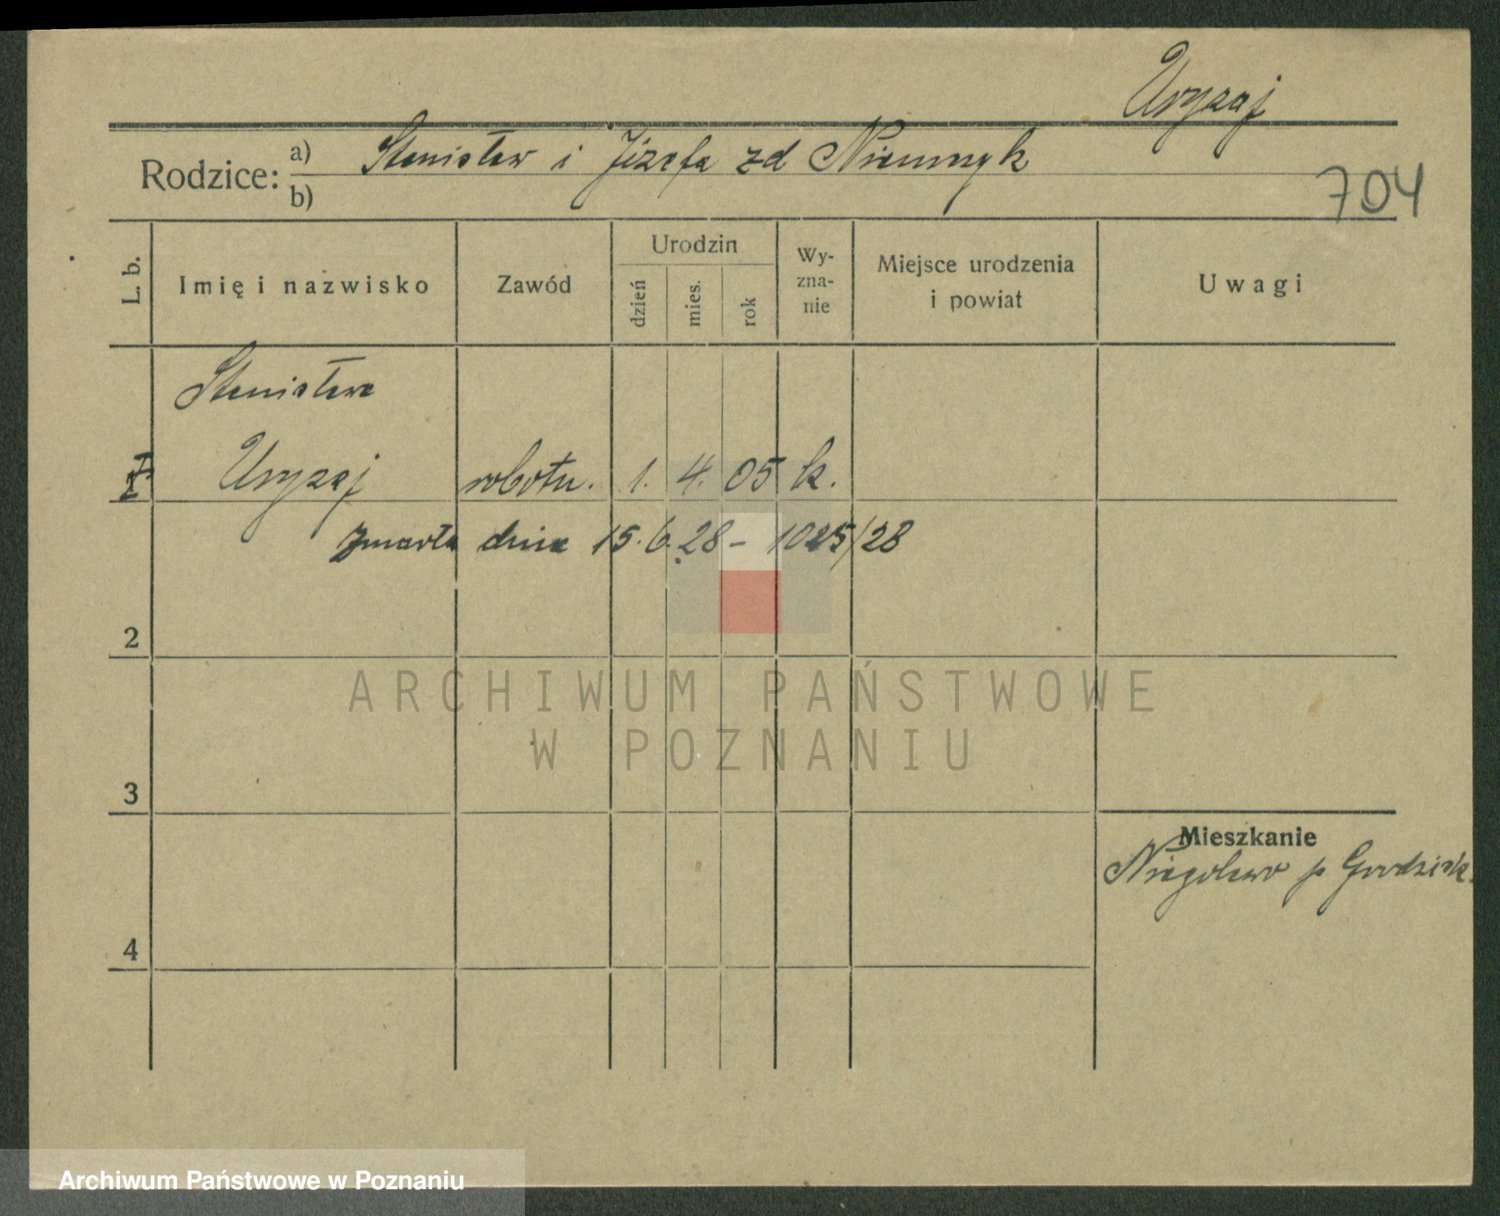 Uryzaj
Rodzice: a) Stanisław i Józefa zd Niemnyk
b)
704
L. b. Imię i nazwisko Zawód Urodzin dzień mies. rok Wy-zna-nie Miejsce urodzenia i powiat Uwagi
Stanisława
1 Uryzaj robotn. 1. 4. 05 k.
zmarła dnia 15.6.28 – 1025/28
2
ARCHIWUM PAŃSTWOWE
W POZNANIU
3
Mieszkanie
Niegolewo p Grodzisk.
4
Archiwum Państwowe w Poznaniu